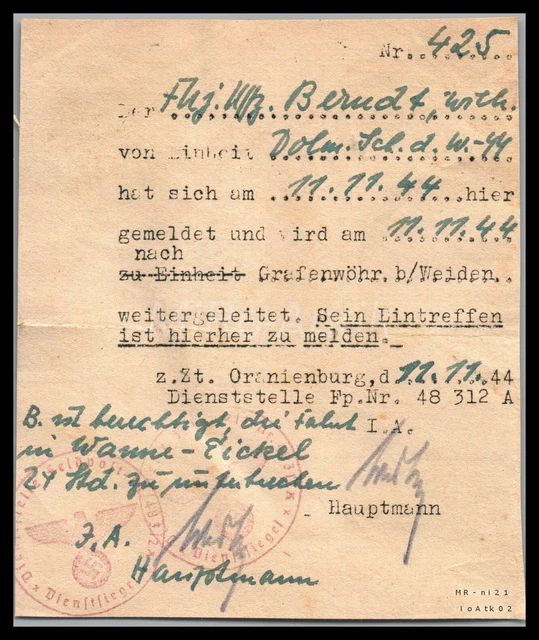 Nr. 425
Der Fhj. Uffz. Berndt, Wilh.
von Einheit Dolm. Sch. d. W.-SS
hat sich am 11.11.44 hier
gemeldet und wird am 11.11.44
nach
zu Einheit Grafenwöhr.b/Weiden
weitergeleitet. Sein Eintreffen
ist hierher zu melden.
z.Zt. Oranienburg,d 11.11.44
Dienststelle Fp.Nr. 48 312 A
B. ist berechtigt, die Fahrt I.A.
in Wanne-Eickel
24 Std. zu unterbrechen
Hauptmann
I.A.
Hauptmann
Dienststelle Feldpost
Dienstsiegel
Dienstsiegel
MR-ni21
ioAtk02